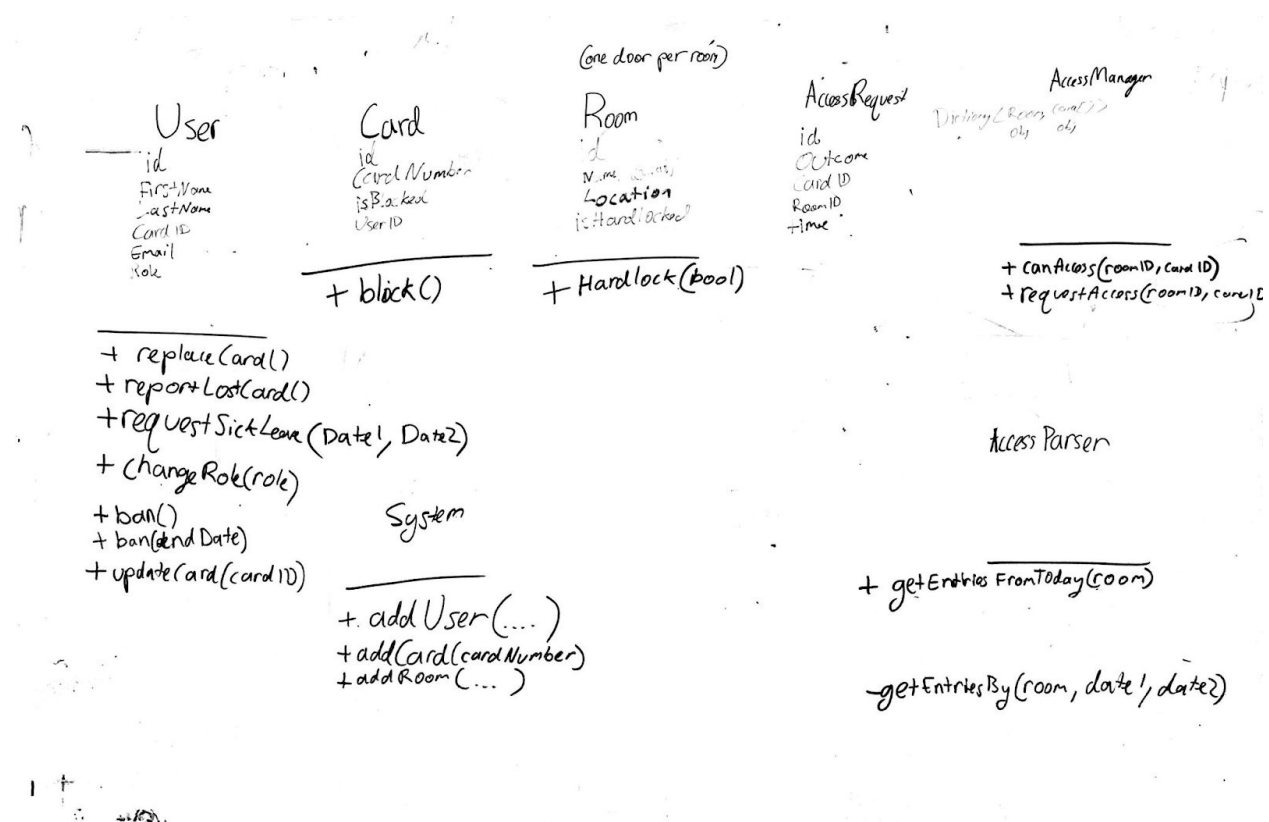 (one door per room)
User
id
FirstName
LastName
Card ID
Email
Role
+ replaceCard()
+ reportLostCard()
+ requestSickLeave(Date1, Date2)
+ changeRole(role)
+ ban()
+ ban(endDate)
+ updateCard(cardID)
Card
id
CardNumber
isBlocked
UserID
+ block()
Room
id
Location
isHardlocked
+ Hardlock(bool)
AccessRequest
id
Outcome
Card ID
RoomID
time
AccessManager
obj obj
+ canAccess(roomID, cardID)
+ requestAccess(roomID, cardID
System
+ addUser(....)
+ addCard(cardNumber)
+ addRoom(...)
Access Parser
+ getEntriesFromToday(room)
-getEntriesBy(room, date1, date2)